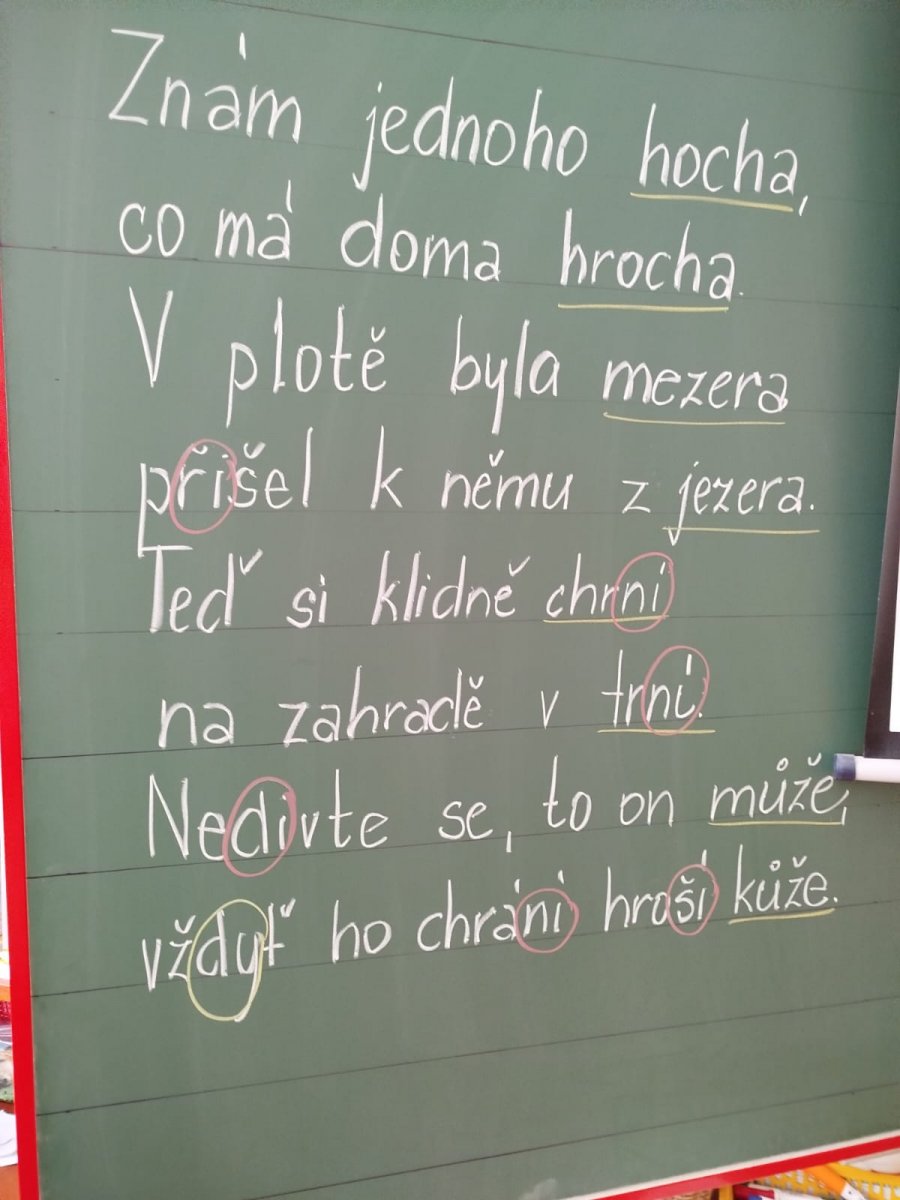 Znám jednoho hocha,
co má doma hrocha.
V plotě byla mezera
přišel k němu z jezera.
Teď si klidně chrní
na zahradě v trní.
Nedivte se, to on může,
vždyť ho chrání hroší kůže.